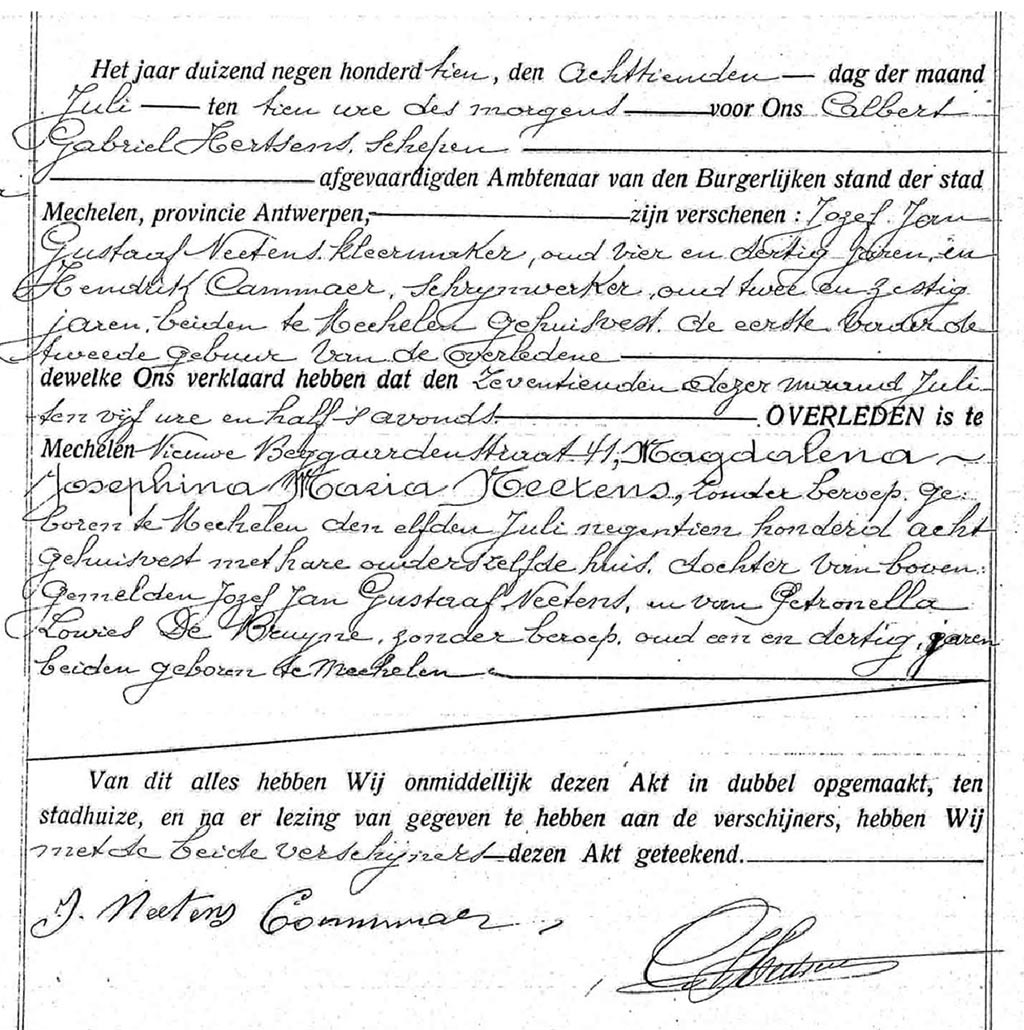 Het jaar duizend negen honderd tien, den Achttienden — dag der maand
Juli — ten tien ure des morgens — voor Ons Albert
Gabriel Hertsens, Schepen —
— afgevaardigden Ambtenaar van den Burgerlijken stand der stad
Mechelen, provincie Antwerpen, — zijn verschenen : Jozef Jan
Gustaaf Neetens, kleermaker, oud vier en dertig jaren, en
Hendrik Cammaer, Schrynwerker, oud twee en zestig
jaren, beiden te Mechelen gehuisvest, de eerste Vader de
tweede gebuur van de overledene —
dewelke Ons verklaard hebben dat den Zeventienden dezer maand Juli
ten vijf ure en half 's avonds — OVERLEDEN is te
Mechelen Nieuwe Beggaardenstraat 41, Magdalena
Josephina Maria Neetens, zonder beroep, ge-
boren te Mechelen den elfden Juli negentien honderd acht
gehuisvest met hare ouders zelfde huis, dochter van boven-
gemelden Jozef Jan Gustaaf Neetens, en van Petronella
Lowies De Bruyne, zonder beroep, oud een en dertig jaren
beiden geboren te Mechelen —
Van dit alles hebben Wij onmiddellijk dezen Akt in dubbel opgemaakt, ten
stadhuize, en na er lezing van gegeven te hebben aan de verschijners, hebben Wij
met de beide verschijners — dezen Akt geteekend.
J. Neetens Cammaer